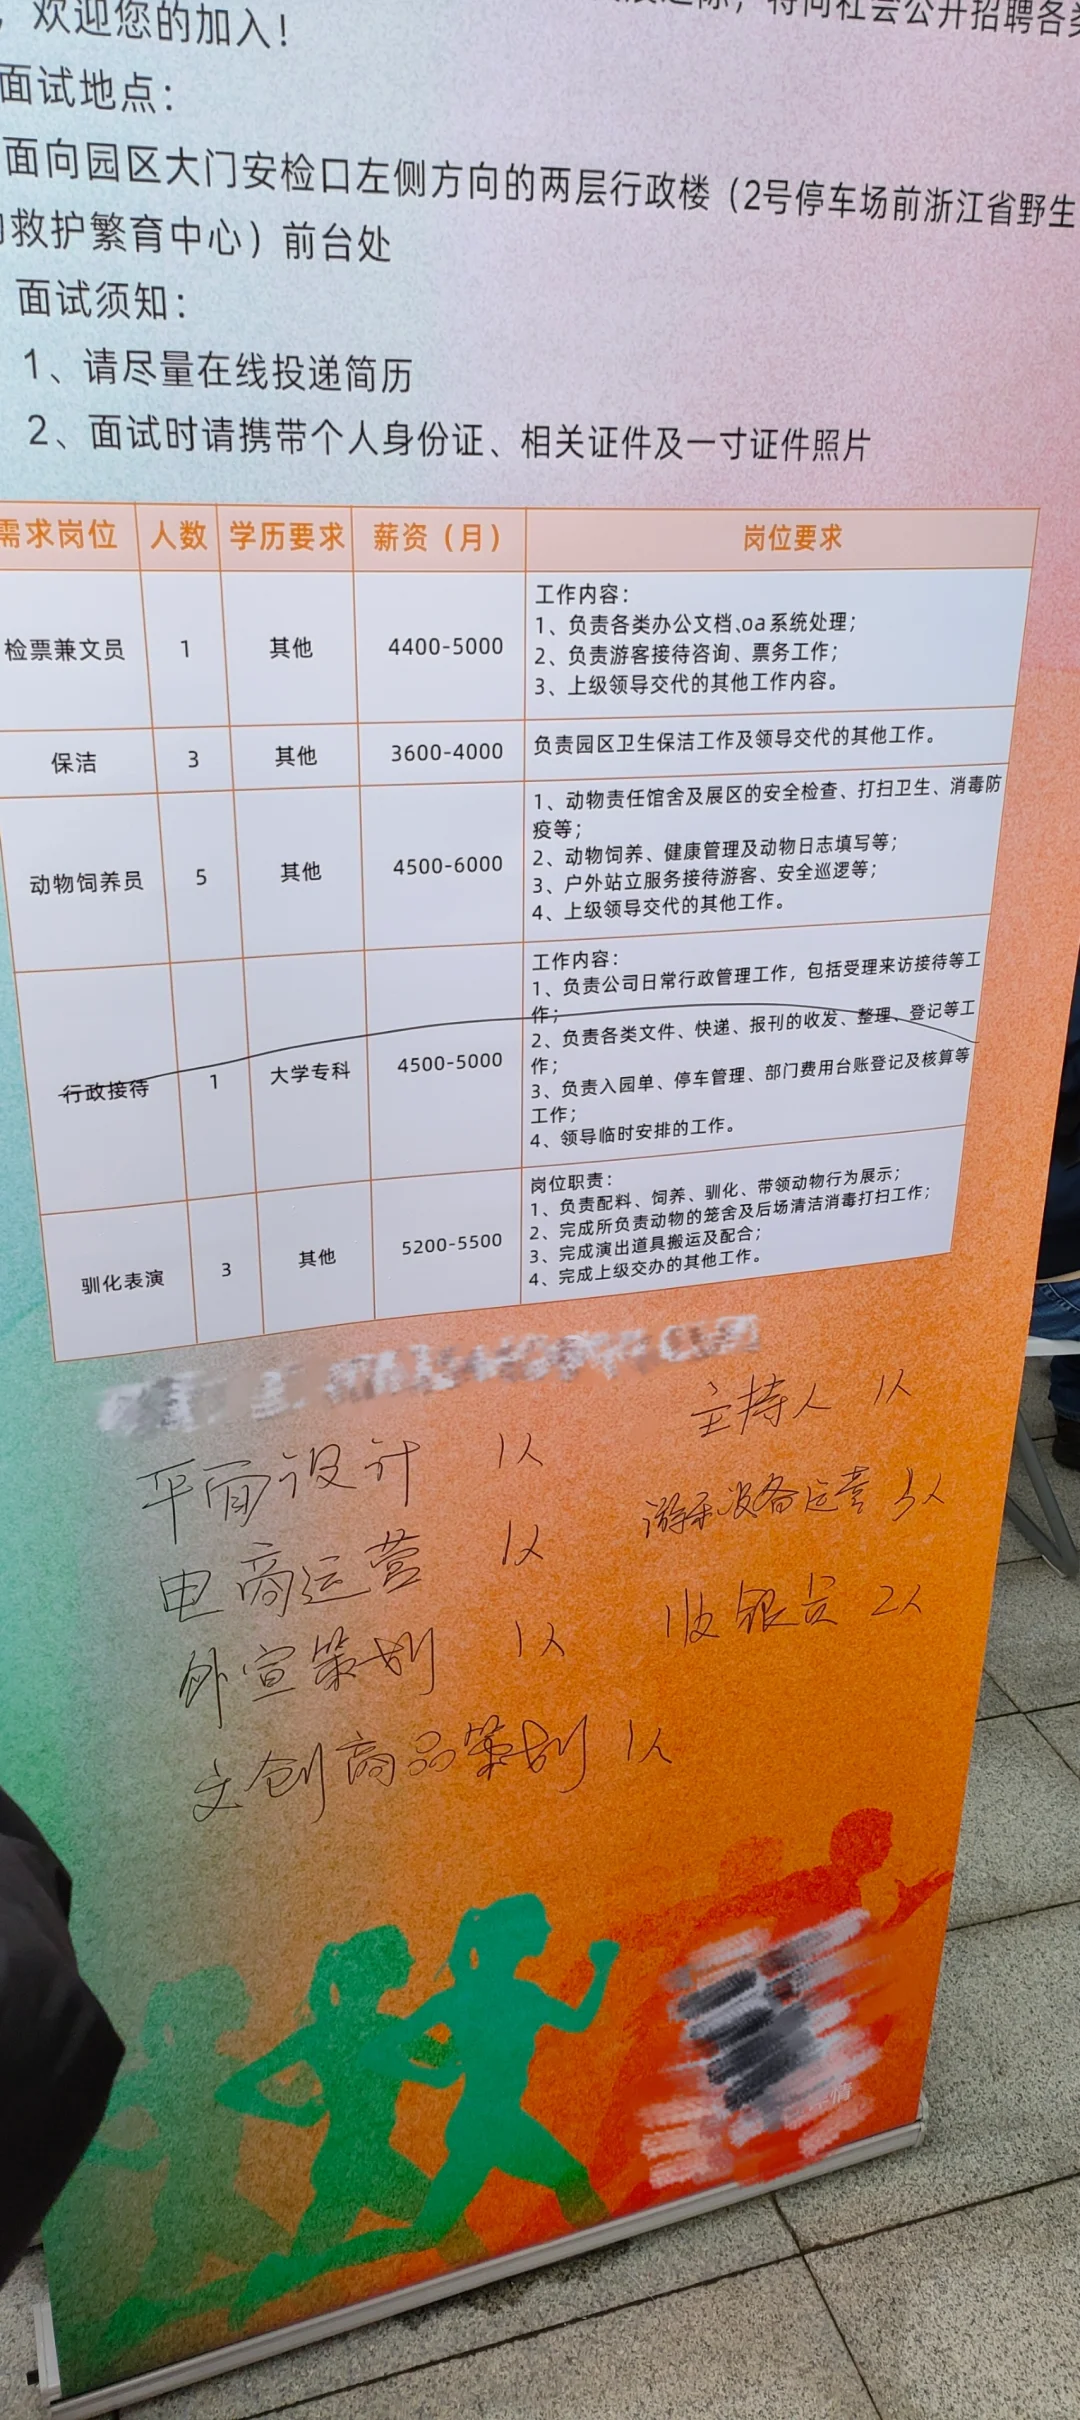 ，欢迎您的加入！
特向社会公开招聘各类
面试地点：
面向园区大门安检口左侧方向的两层行政楼（2号停车场前浙江省野生
救护繁育中心）前台处
面试须知：
1、请尽量在线投递简历
2、面试时请携带个人身份证、相关证件及一寸证件照片
需求岗位 人数 学历要求 薪资（月） 岗位要求
检票兼文员 1 其他 4400-5000
工作内容：
1、负责各类办公文档、oa系统处理；
2、负责游客接待咨询、票务工作；
3、上级领导交代的其他工作内容。
保洁 3 其他 3600-4000 负责园区卫生保洁工作及领导交代的其他工作。
动物饲养员 5 其他 4500-6000
1、动物责任馆舍及展区的安全检查、打扫卫生、消毒防
疫等；
2、动物饲养、健康管理及动物日志填写等；
3、户外站立服务接待游客、安全巡逻等；
4、上级领导交代的其他工作。
行政接待 1 大学专科 4500-5000
工作内容：
1、负责公司日常行政管理工作，包括受理来访接待等工
作；
2、负责各类文件、快递、报刊的收发、整理、登记等工
作；
3、负责入园单、停车管理、部门费用台账登记及核算等
工作；
4、领导临时安排的工作。
驯化表演 3 其他 5200-5500
岗位职责：
1、负责配料、饲养、驯化、带领动物行为展示；
2、完成所负责动物的笼舍及后场清洁消毒打扫工作；
3、完成演出道具搬运及配合；
4、完成上级交办的其他工作。
平面设计 1人 主持人 1人
电商运营 1人 游乐设备运营 3人
外宣策划 1人 收银员 2人
文创商品策划 1人
情